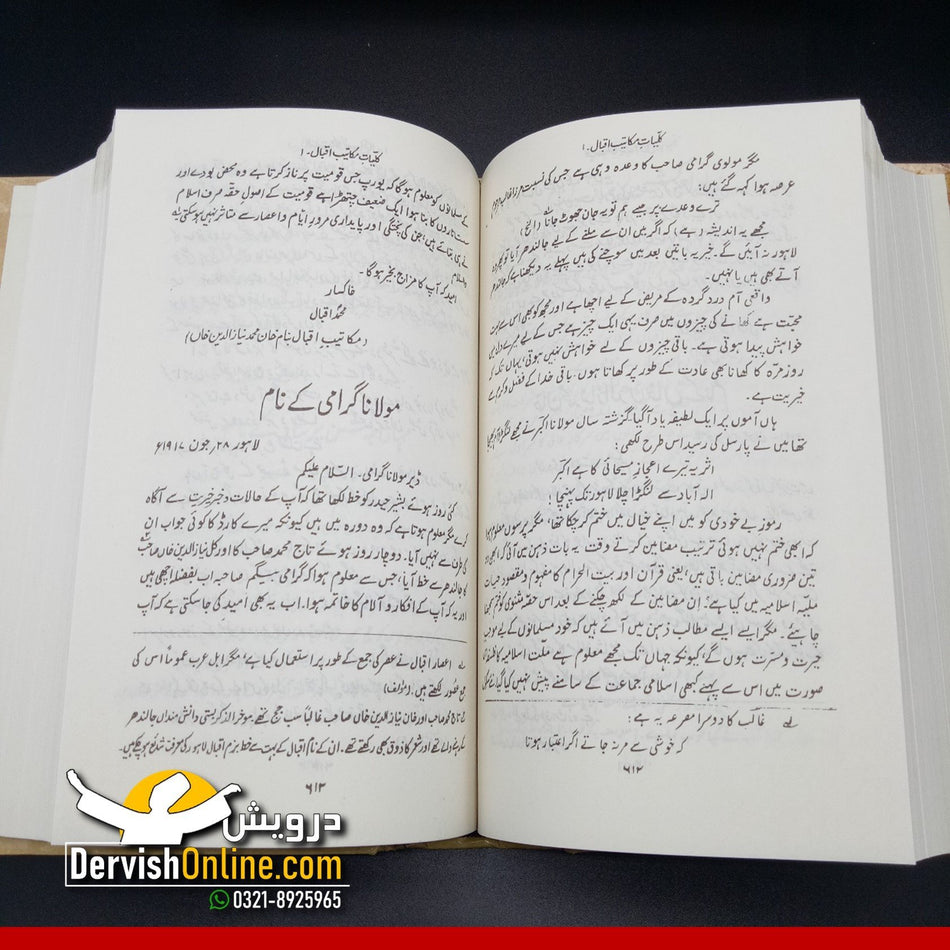 کلّیاتِ مکاتیب اقبال ۔ ۱
مگر مولوی گرامی صاحب کا وعدہ وہی ہے جس کی نسبت مرزا غالب
عرصہ ہوا کہہ گئے ہیں:
ترے وعدے پر جیے ہم تو یہ جان جھوٹ جانا
مجھے یہ اندیشہ (ہے) کہ اگر میں ان سے ملنے کے لیے جالندھر آیا تو پھر وہ
لاہور نہ آئیں گے۔ خیر یہ باتیں بعد میں سوچنے کی ہیں پہلے یہ دیکھنا ہے کہ
آتے بھی ہیں یا نہیں۔
واقعی آم دردِ گردہ کے مریض کے لیے اچھا ہے اور مجھ کو بھی اس سے
محبت ہے کھانے کی چیزوں میں صرف یہی ایک چیز ہے جس کے لیے میرے دل میں
خواہش پیدا ہوتی ہے۔ باقی چیزوں کے لیے خواہش نہیں ہوتی، یہاں تک کہ
روز مرّہ کا کھانا بھی عادت کے طور پر کھاتا ہوں۔ باقی خدا کے فضل و کرم سے
خیریت ہے۔
ہاں آموں پر ایک لطیفہ یاد آگیا۔ گزشتہ سال مولانا اکبر نے مجھے لنگڑا آم بھیجا
تھا میں نے پارسل کی رسید اس طرح لکھی:
اثر یہ تیرے اعجازِ مسیحائی کا ہے اکبر
الہ آباد سے لنگڑا چلا لاہور تک پہنچا!
رموزِ بے خودی کو میں اپنے خیال میں ختم کر چکا تھا، مگر پرسوں معلوم ہوا
کہ ابھی ختم نہیں ہوئی ترتیب مضامین کرتے وقت یہ بات ذہن میں آئی کہ ابھی دو
تین ضروری مضامین باقی ہیں، یعنی قرآن اور بیت الحرام کا مفہوم و مقصود حیاتِ
ملّیۂ اسلامیہ میں کیا ہے؟ اِن مضامین کے لکھ چکنے کے بعد اس حصّہ مثنوی کو ختم سمجھنا
چاہیئے۔ مگر ایسے ایسے مطالب ذہن میں آئے ہیں کہ خود مسلمانوں کے لیے موجبِ
حیرت و مسرت ہوں گے، کیونکہ جہاں تک مجھے معلوم ہے ملّتِ اسلامیہ کا فلسفہ
صورت میں اس سے پہلے کبھی اسلامی جماعت کے سامنے پیش نہیں کیا گیا۔
لے غالب کا دوسرا مصرعہ یہ ہے:
کہ خوشی سے مر نہ جاتے اگر اعتبار ہوتا
۶۱۲
کلّیاتِ مکاتیب اقبال ۔ ۱
کے مسلمانوں کو معلوم ہوگا کہ یورپ جس قومیت پر ناز کرتا ہے وہ محض بودے اور
سست تاروں کا بنا ہوا ایک ضعیف چیتھڑا ہے قومیت کے اصولِ حقّہ صرف اسلام
نے ہی بتائے ہیں، جن کی پختگی اور پایداری مرورِ ایّام و اعصار سے متاثر نہیں ہو سکتی
والسلام
امید کہ آپ کا مزاج بخیر ہوگا۔
خاکسار
محمدؐ اقبال
(مکاتیبِ اقبال بنام خان محمد نیاز الدین خاں)
مولانا گرامی کے نام
لاہور ۲۸؍ جون ۱۹۱۷ء
ڈیر مولانا گرامی۔ السّلام علیکم
کئی روز ہوئے بشیر حیدر کو خط لکھا تھا کہ آپ کے حالات و خیر خیریت سے آگاہ
کرے مگر معلوم ہوتا ہے کہ وہ دورہ میں ہیں کیونکہ میرے کارڈ کا کوئی جواب ان
کی طرف سے نہیں آیا۔ دو چار روز ہوئے تاج محمد صاحب کا اور کل نیاز الدین خاں صاحب
کا جالندھر سے خط آیا، جس سے معلوم ہوا کہ گرامی بیگم صاحبہ اب بفضلہٖ اچھی ہیں
اور یہ کہ آپ کے افکار و آلام کا خاتمہ ہوا۔ اب یہ بھی امید کی جا سکتی ہے کہ آپ
لے اعصار اقبال نے عصر کی جمع کے طور پر استعمال کیا ہے، مگر اہل عرب عموماً اس کی
جمع عصُور لکھتے ہیں۔ (مؤلف)
لے تاج محمد صاحب اور خان نیاز الدین خاں صاحب غالباً سب جج تھے موخر الذکر بستی دانش منداں جالندھر
کے رہنے والے تھے اور شعر کا ذوق بھی رکھتے تھے۔ ان کے نام اقبال کے بہت سے خط بزم اقبال لاہور کی معرفت شائع ہو چکے ہیں۔
۶۱۳
درویش
DervishOnline.com
0321-8925965